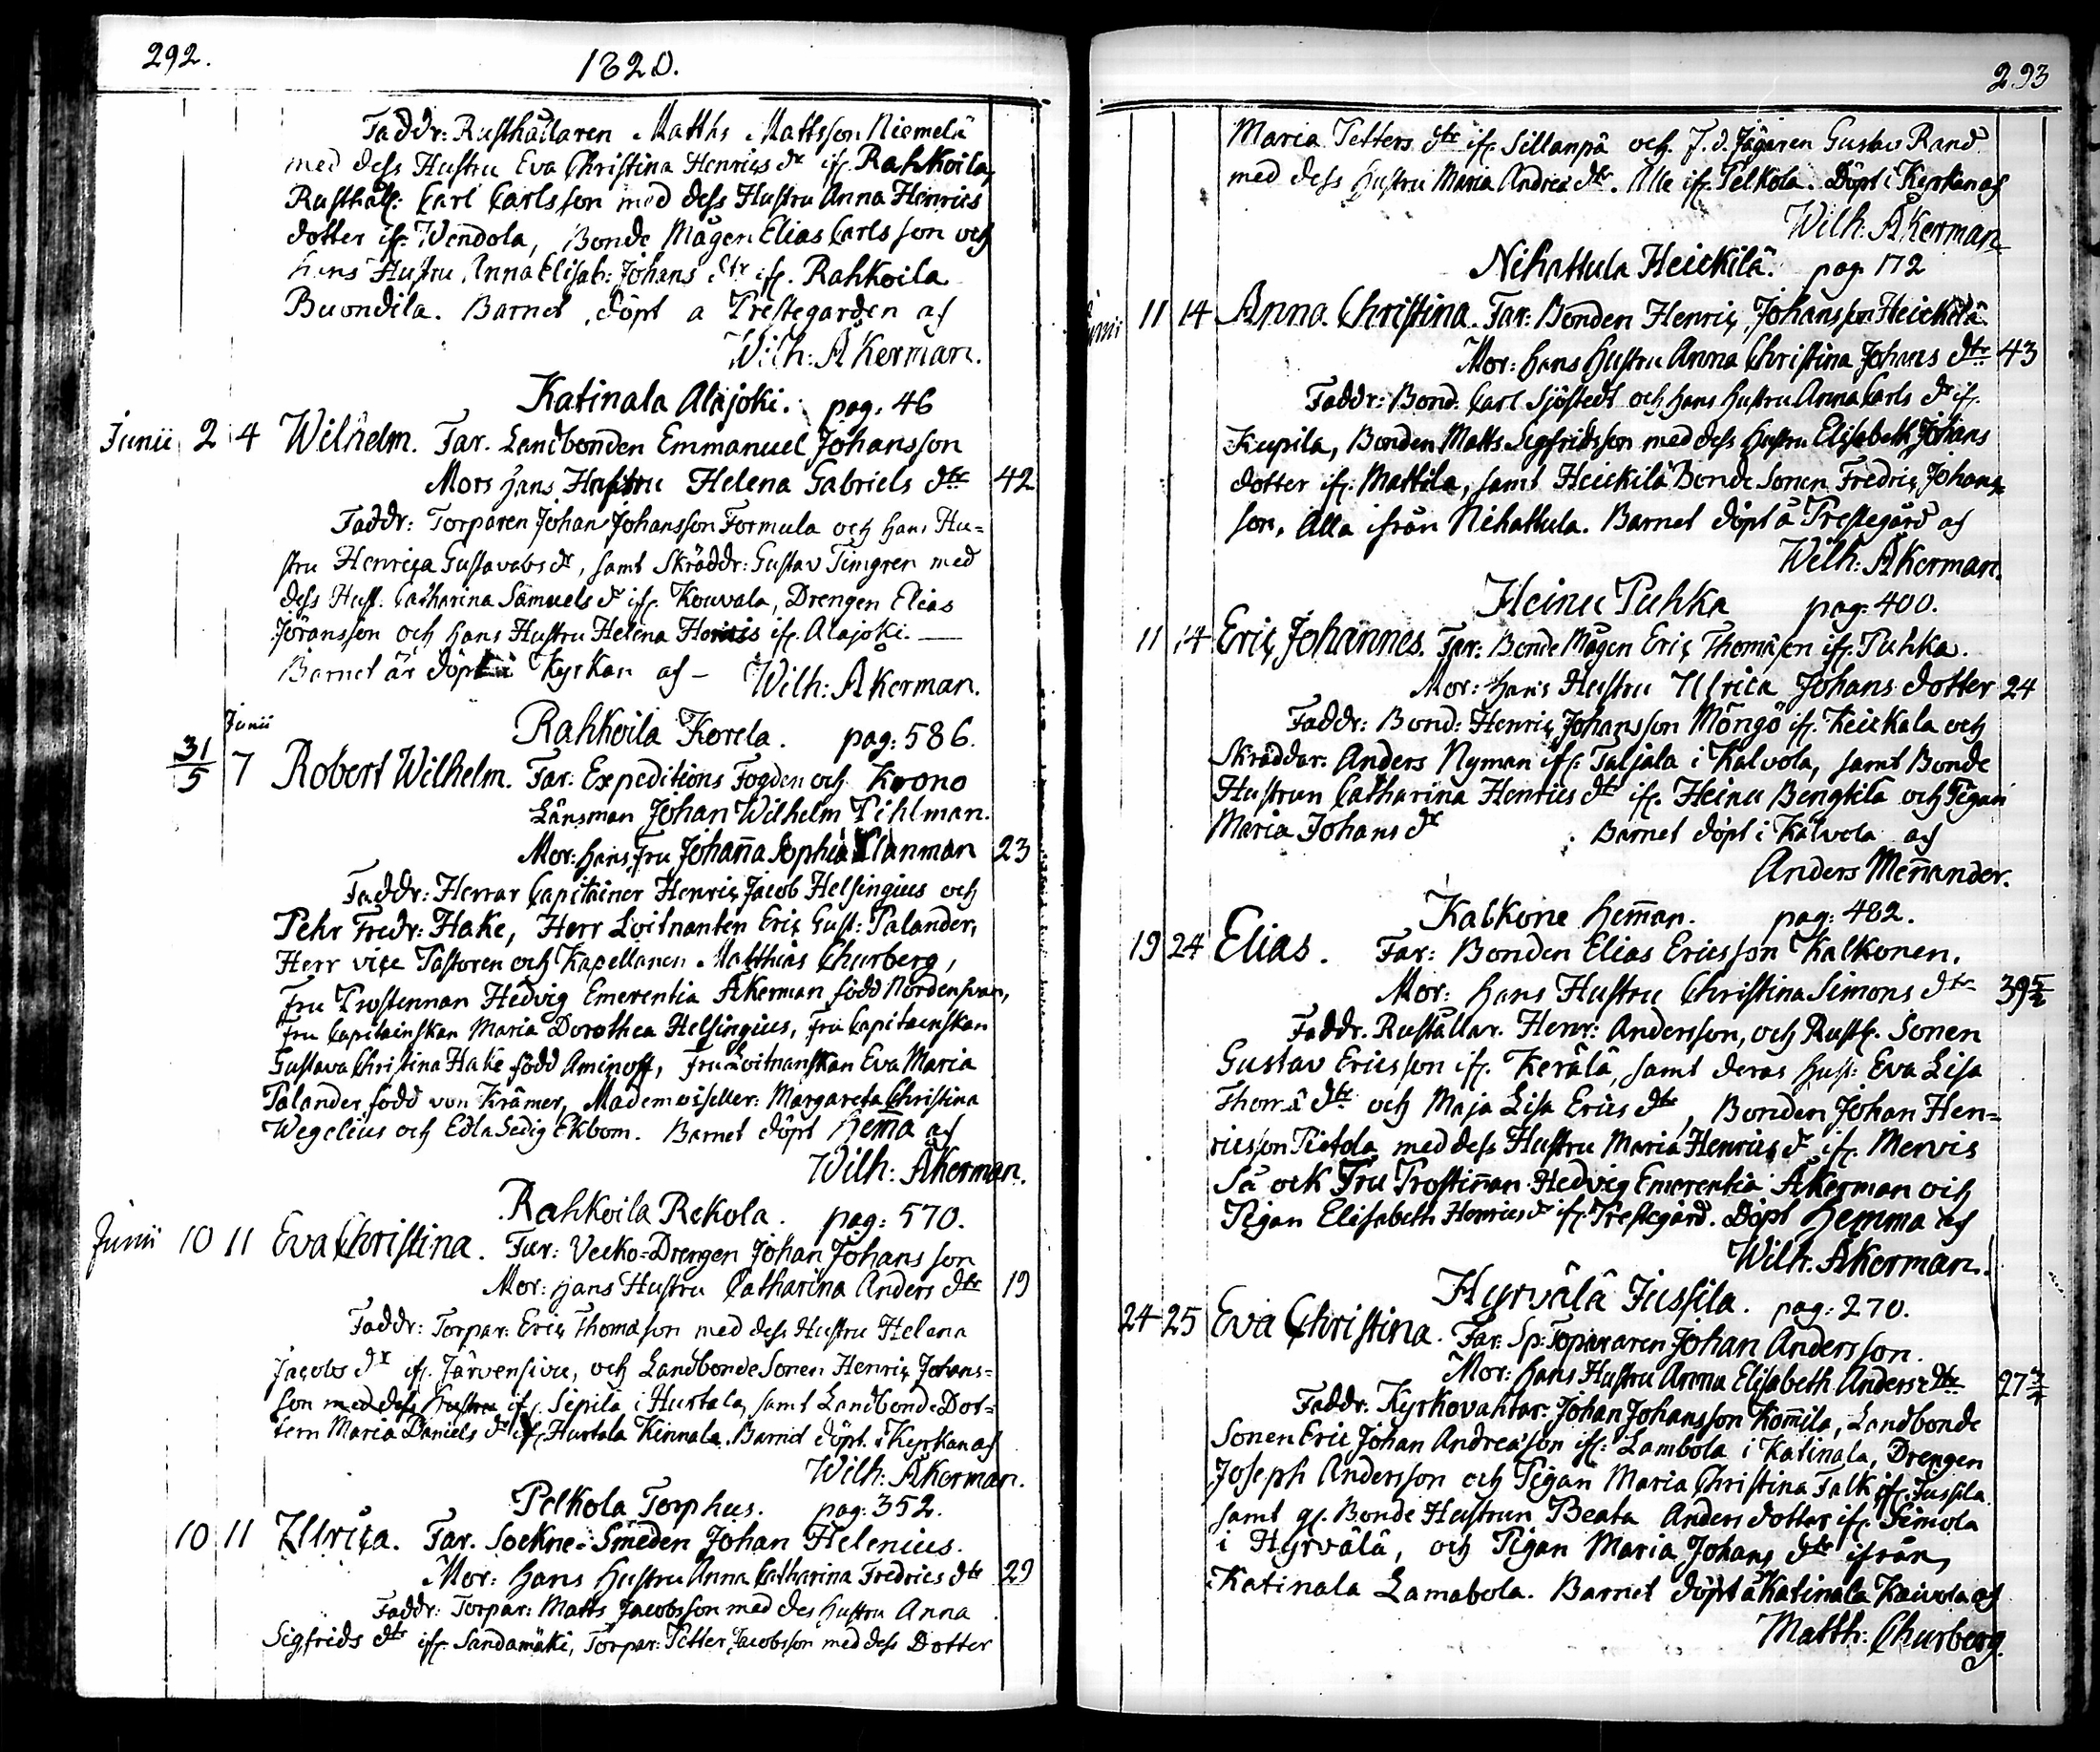 292.
1820.
Faddr: Rusthållaren Matths Mattsson Niemelä
med dess Hustru Eva Christina Henrics dr ifr. Rahkoila,
Rusthåll: Carl Carlsson med dess Hustru Anna Henrics
dotter ifr. Wendola, Bonde Mågen Elias Carlsson och
hans Hustru Anna Elisab: Johans dtr ifr. Rahkoila
Buondila. Barnet döpt a Prestegarden af
Wilh: Åkerman.
Katinala Alajoki. pag. 46
Junii 2 4 Wilhelm. Far. Landbonden Emmanuel Johansson
Mors Hans Hustru Helena Gabriels dtr 42
Faddr: Torparen Johan Johansson Formula och hans Hu-
stru Henrica Gustavabs dr, samt Skräddr: Gustav Timgren med
dess Hust. Catharina Samuels dr ifr. Kouvala, Drengen Elias
Jöransson och hans Hustru Helena ifr. Alajoki. —
Barnet är döpt i Kyrkan af – Wilh: Åkerman.
Junii
Rahkoila Korela. pag: 586.
31/5 7 Robert Wilhelm. Far: Expeditions Fogden och Krono
Länsman Johan Wilhelm Pihlman.
Mor: hans Fru Johaña Sophia Clanman 23
Faddr: Herrar Capitainer Henric Jacob Helsingius och
Pehr Fredr: Hake, Herr Loitnanten Eric Gust: Palander,
Herr vice Pastoren och Kapellanen Matthias Churberg,
Fru Prostennan Hedvig Emerentia Åkerman född Nordensvan,
Fru Capitainskan Maria Dorothea Helsingius, Fru Capitainskan
Gustava Christina Hake född Aminoff, Fru Loitnanskan Eva Maria
Palander född von Krämer, Mademoiseller: Margareta Christina
Wegelius och Edla Sedig Ekbom. Barnet döpt Hem̃a af
Wilh: Åkerman.
Rahkoila Rekola. pag: 570.
Junii 10 11 Eva Christina. Far: Vecko-Drengen Johan Johansson
Mor: Hans Hustru Catharina Anders dtr 19
Faddr: Torpar: Eric Thomason med dess Hustru Helena
Jacobs dr ifr. Järvensivu, och Landbonde Sonen Henric Johans-
son med dess Hustru ifr. Sepilä i Hurtala, samt Landbonde Dot-
tern Maria Daniels dr ifr. Hurtala Kinnala. Barnet döpt i Kyrkan af
Wilh: Åkerman.
Pelkola Torphus. pag: 352.
10 11 Ulrica. Far. Sockne-Smeden Johan Helenius.
Mor: Hans Hustru Anna Catharina Fredrics dtr 29
Faddr: Torpar: Matts Jacobsson med des Hustru Anna
Sigfrids dtr ifr. Sandamäki, Torpar: Petter Jacobsson med dess Dotter
293
Maria Petters dtr ifr. Sillanpä och F. d. Jägaren Gustav Rand
med dess Hustru Maria Andreä dtr. Alle ifr. Pelkola. Döpt i Kyrkan af
Wilh: Åkerman
Nihattula Heickilä. pag. 172
Junii 11 14 Anna Christina. Far: Bonden Henric Johansson Heickilä
Mor: Hans Hustru Anna Christina Johans dtr 43
Faddr: Bond. Carl Sjöstedt och hans Hustru Anna Carls dr ifr.
Kupila, Bonden Matts Sigfridsson med dess Hustru Elisabeth Johans
dotter ifr. Mattila, samt Heickilä Bonde Sonen Fredric Johans-
son, Alla ifrån Nihattula. Barnet döpt å Prestegård af
Wilh: Åkerman.
Heinu Puhka pag: 400.
11 14 Eric Johannes. Far: Bonde Mågen Eric Thomason ifr. Puhka.
Mor: Hans Hustru Ulrica Johans dotter 24
Faddr: Bond: Henric Johansson Möngö ifr. Keickala och
Skräddar: Anders Nyman ifr: Taljala i Kalvola, samt Bonde
Hustrun Catharina Henrics dtr ifr. Heinu Bengtilä och Pigan
Maria Johans dr Barnet döpt i Kalvola af
Anders Meñander.
Kalkone Hem̃an. pag: 482.
19 24 Elias. Far: Bonden Elias Ericsson Kalkonen.
Mor: Hans Hustru Christina Simons dtr 39 5/2
Faddr. Rustållar. Henr: Andersson, och Rusth. Sonen
Gustav Ericsson ifr. Kerälä, samt deras Hust: Eva Lisa
Thomä dtr och Maja Lisa Erics dtr, Bonden Johan Hen-
ricsson Pietola med dess Hustru Maria Henrics dr ifr. Mervis
Så ock Fru Prostiñan Hedvig Emerentia Åkerman och
Pigan Elisabeth Henrics dr ifr. Prestegård. Döpt Hemma af
Wilh. Åkerman.
Hyrvälä Jussila. pag: 270.
24 25 Eva Christina. Far: Sp: Topararen Johan Andersson.
Mor: Hans Hustru Anna Elisabeth Anders dtr 27 3/4
Faddr: Kyrkovaktar: Johan Johansson Kom̃ila, Landbonde
Sonen Eric Johan Andreason ifr: Lambola i Katinala, Drengen
Joseph Andersson och Pigan Maria Christina Falk ifr. Jussila
samt gl. Bonde Hustrun Beata Anders dotter ifr. Simola
i Hyrvälä, och Pigan Maria Johans dtr ifrån
Katinala Lamabola. Barnet döpt å Katinala Kaivola af
Matth: Churberg.